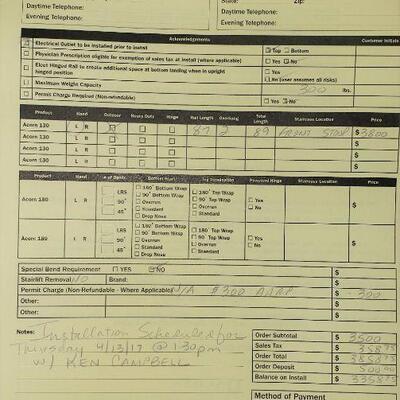 Daytime Telephone: Zip:
Evening Telephone: Daytime Telephone:
Evening Telephone:
Acknowledgements Customer Initials
Electrical Outlet to be installed prior to install Top Bottom
Physician Prescription eligible for exemption of sales tax at install (where applicable) Yes No
Elect Hinged Rail to create additional space at bottom landing when in upright hinged position Yes
No (user assumes all risks)
Maximum Weight Capacity 300 lbs.
Permit Charge Required (Non-refundable) Yes No
Product Hand Outdoor Heavy Duty Hinge Rail Length Overhang Total Length Staircase Location Price
Acorn 130 L R 87 2 89 FRONT STOOP $3800
Acorn 130 L R $
Acorn 130 L R $
Acorn 130 L R $
Product Hand # of Bends Powered Hinge Staircase Location Price
Acorn 180 L R LRS 90° 45° 180° Bottom Wrap 90° Bottom Wrap Overrun Standard Drop Nose 180° Top Wrap 90° Top Wrap Overrun Standard Yes No $
Acorn 180 L R LRS 90° 45° 180° Bottom Wrap 90° Bottom Wrap Overrun Standard Drop Nose 180° Top Wrap 90° Top Wrap Overrun Standard Yes No $
Special Bend Requirement YES NO $
Stairlift Removal NO Brand: $
Permit Charge (Non-Refundable - Where Applicable) N/A #300 $ 300
Other: $
Other: $
Notes: Installation Scheduled for
Thursday 4/13/17 @ 1:30pm
w/ KEN CAMPBELL
Order Subtotal $ 3500
Sales Tax $ 358.75
Order Total $ 3858.75
Order Deposit $ 500.00
Balance on Install $ 3358.75
Method of Payment